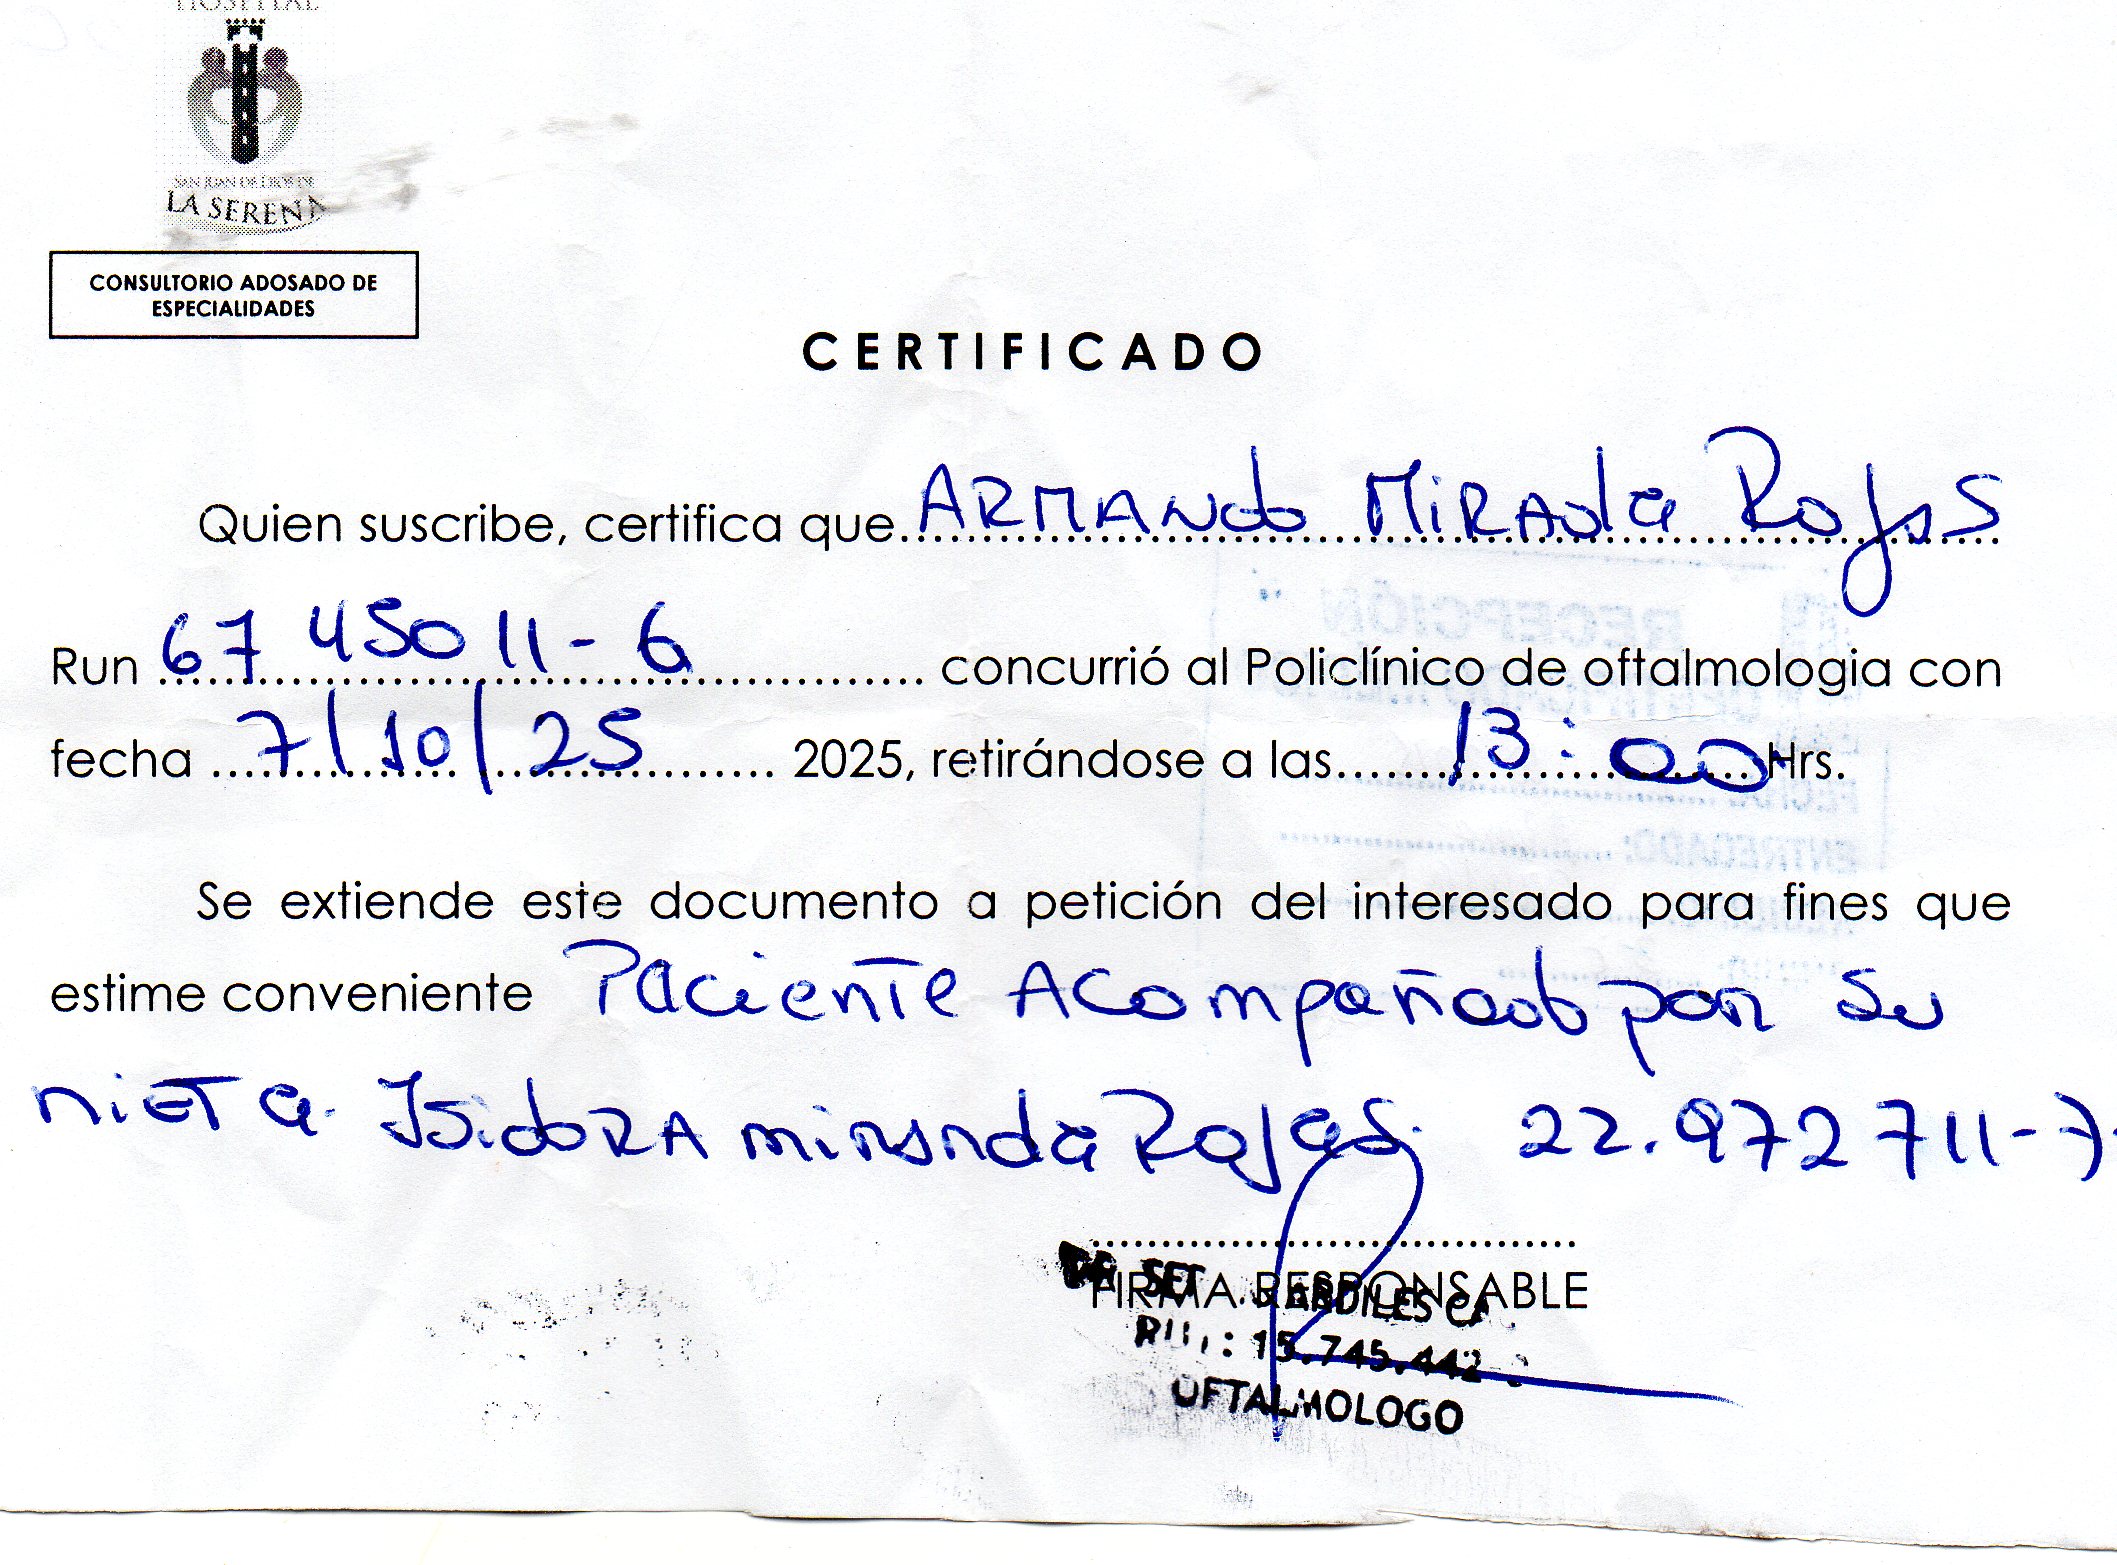 HOSPITAL
SAN JUAN DE DIOS DE
LA SERENA
CONSULTORIO ADOSADO DE
ESPECIALIDADES
CERTIFICADO
Quien suscribe, certifica que ARMANdo MiRAda Rojas
Run 67 45011-6 concurrió al Policlínico de oftalmologia con
fecha 7/10/25 2025, retirándose a las 13:00 Hrs.
Se extiende este documento a petición del interesado para fines que
estime conveniente Paciente Acompañado por su
nieta Isidora miranda Rojas. 22.972711-7
FIRMA RESPONSABLE
ARDILES
15.745.442
OFTALMOLOGO
RECEPCIÓN
ENTREGADO: